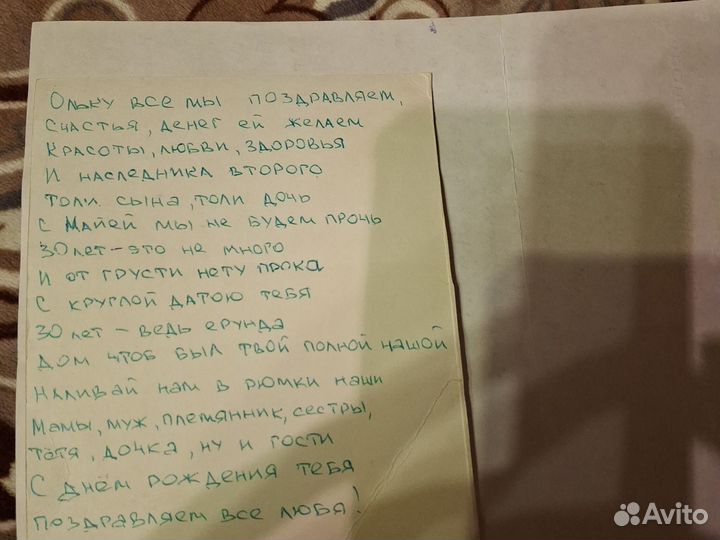 Ольку все мы поздравляем,
счастья, денег ей желаем
красоты, любви, здоровья
и наследника второго
толи сына, толи дочь
с Майей мы не будем прочь
30 лет - это не много
и от грусти нету прока
с круглой датою тебя
30 лет - ведь ерунда
дом чтоб был твой полной чашой
наливай нам в рюмки наши
Мамы, муж, племянник, сестры,
тётя, дочка, ну и гости
с днём рождения тебя
поздравляем все любя!
Avito